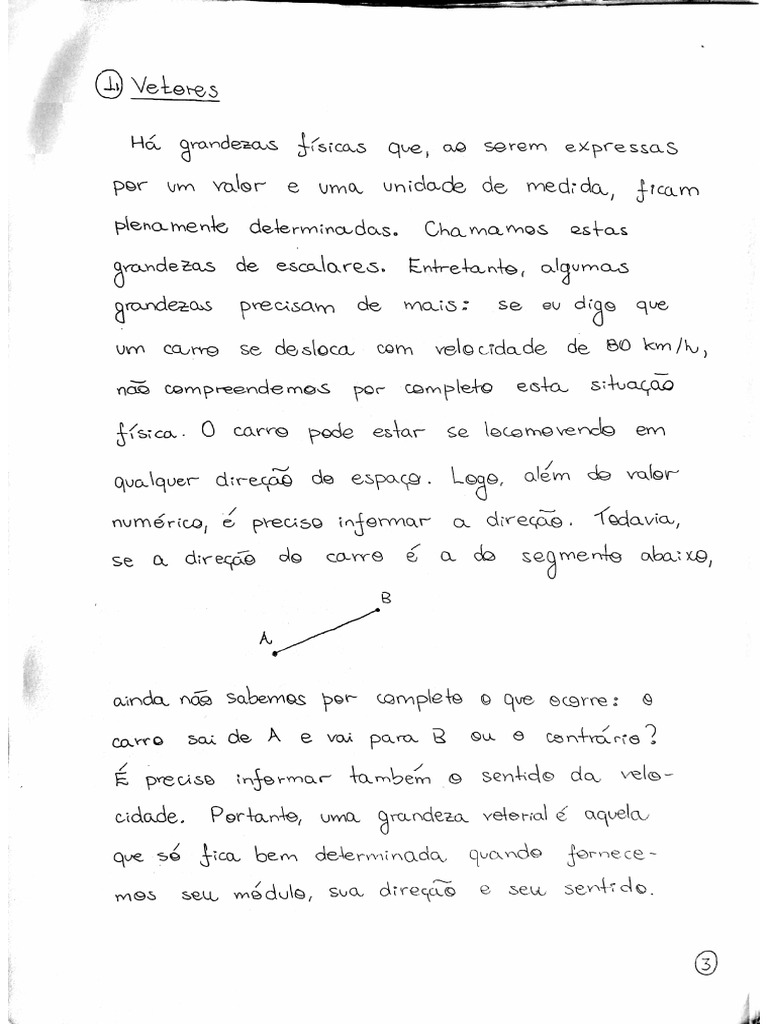 1 Vetores
Há grandezas físicas que, ao serem expressas
por um valor e uma unidade de medida, ficam
plenamente determinadas. Chamamos estas
grandezas de escalares. Entretanto, algumas
grandezas precisam de mais: se eu digo que
um carro se desloca com velocidade de 80 km/h,
não compreendemos por completo esta situação
física. O carro pode estar se locomovendo em
qualquer direção do espaço. Logo, além do valor
numérico, é preciso informar a direção. Todavia,
se a direção do carro é a do segmento abaixo,
B
A
ainda não sabemos por completo o que ocorre: o
carro sai de A e vai para B ou o contrário?
É preciso informar também o sentido da velo-
cidade. Portanto, uma grandeza vetorial é aquela
que só fica bem determinada quando fornece-
mos seu módulo, sua direção e seu sentido.
3